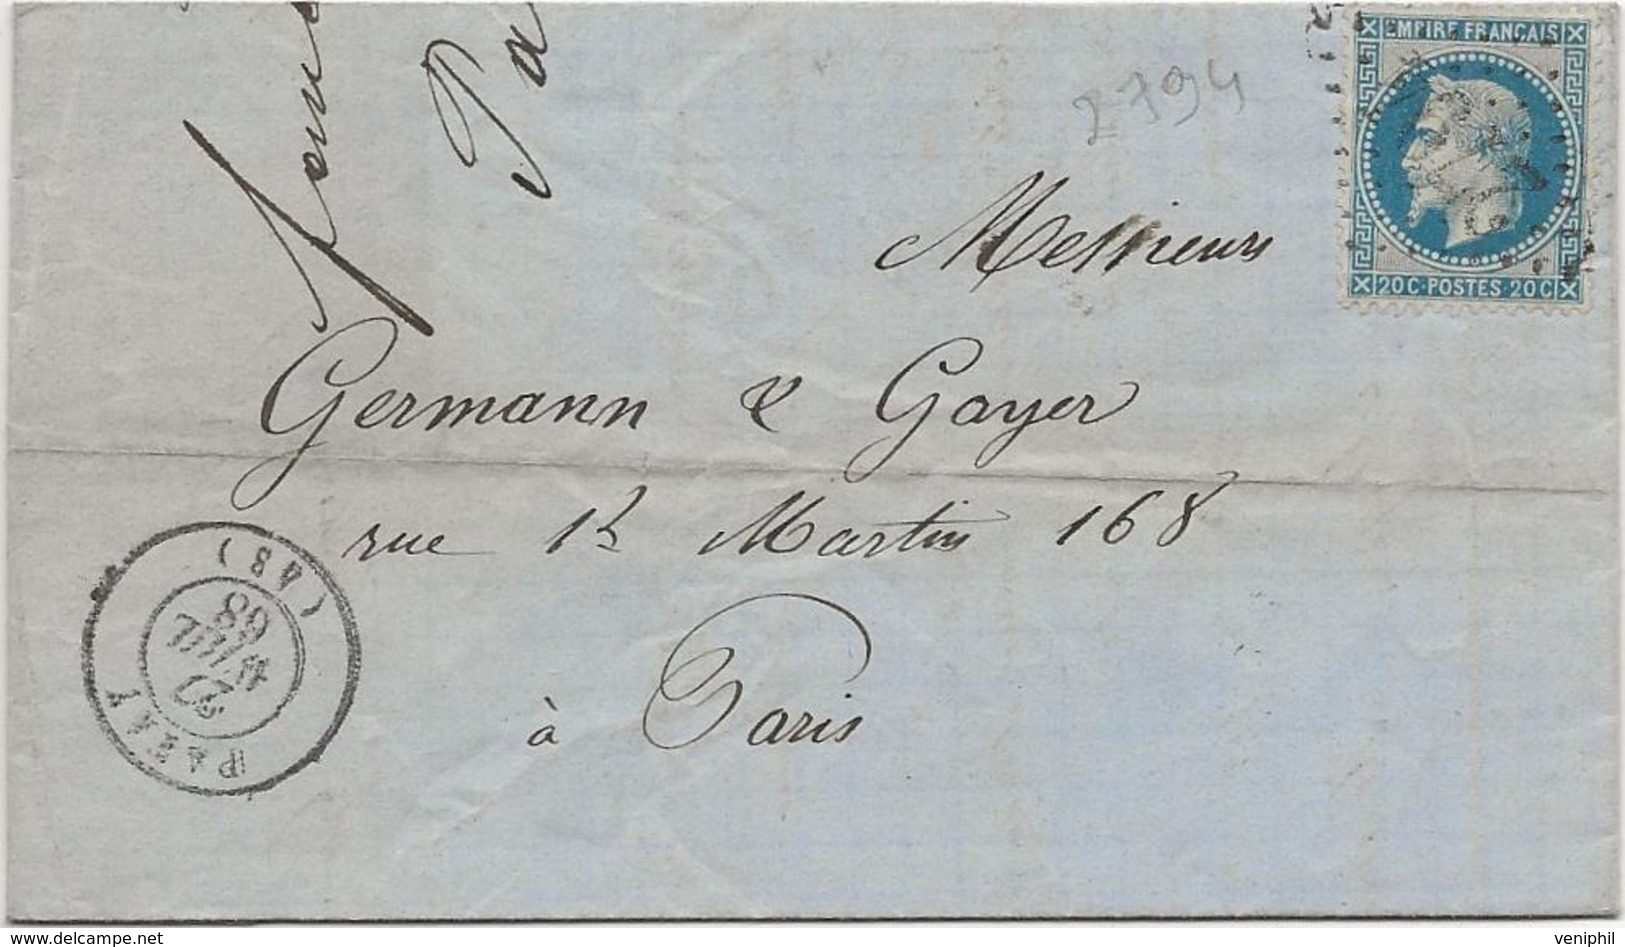 EMPIRE FRANÇAIS
20C·POSTES·20C
2794
Pa
Messieurs
Germann & Gayer
rue St Martin 168
à Paris
(48)
68
27
delcampe.net
veniphil